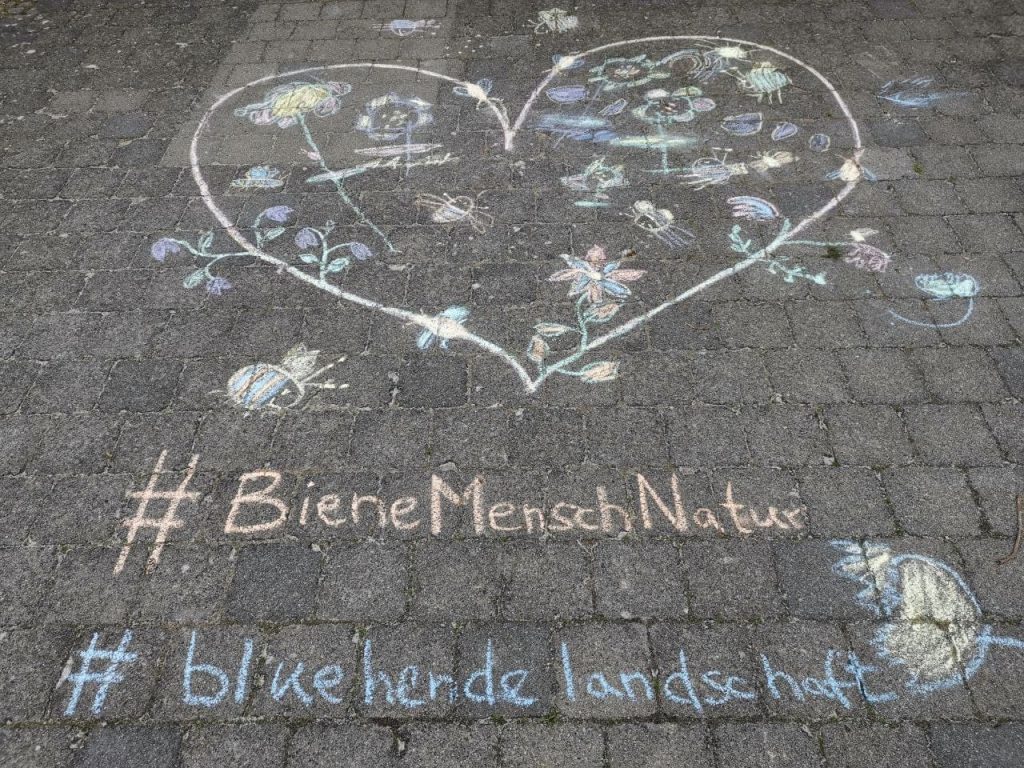 #BieneMenschNatur
# bluehende landschaft